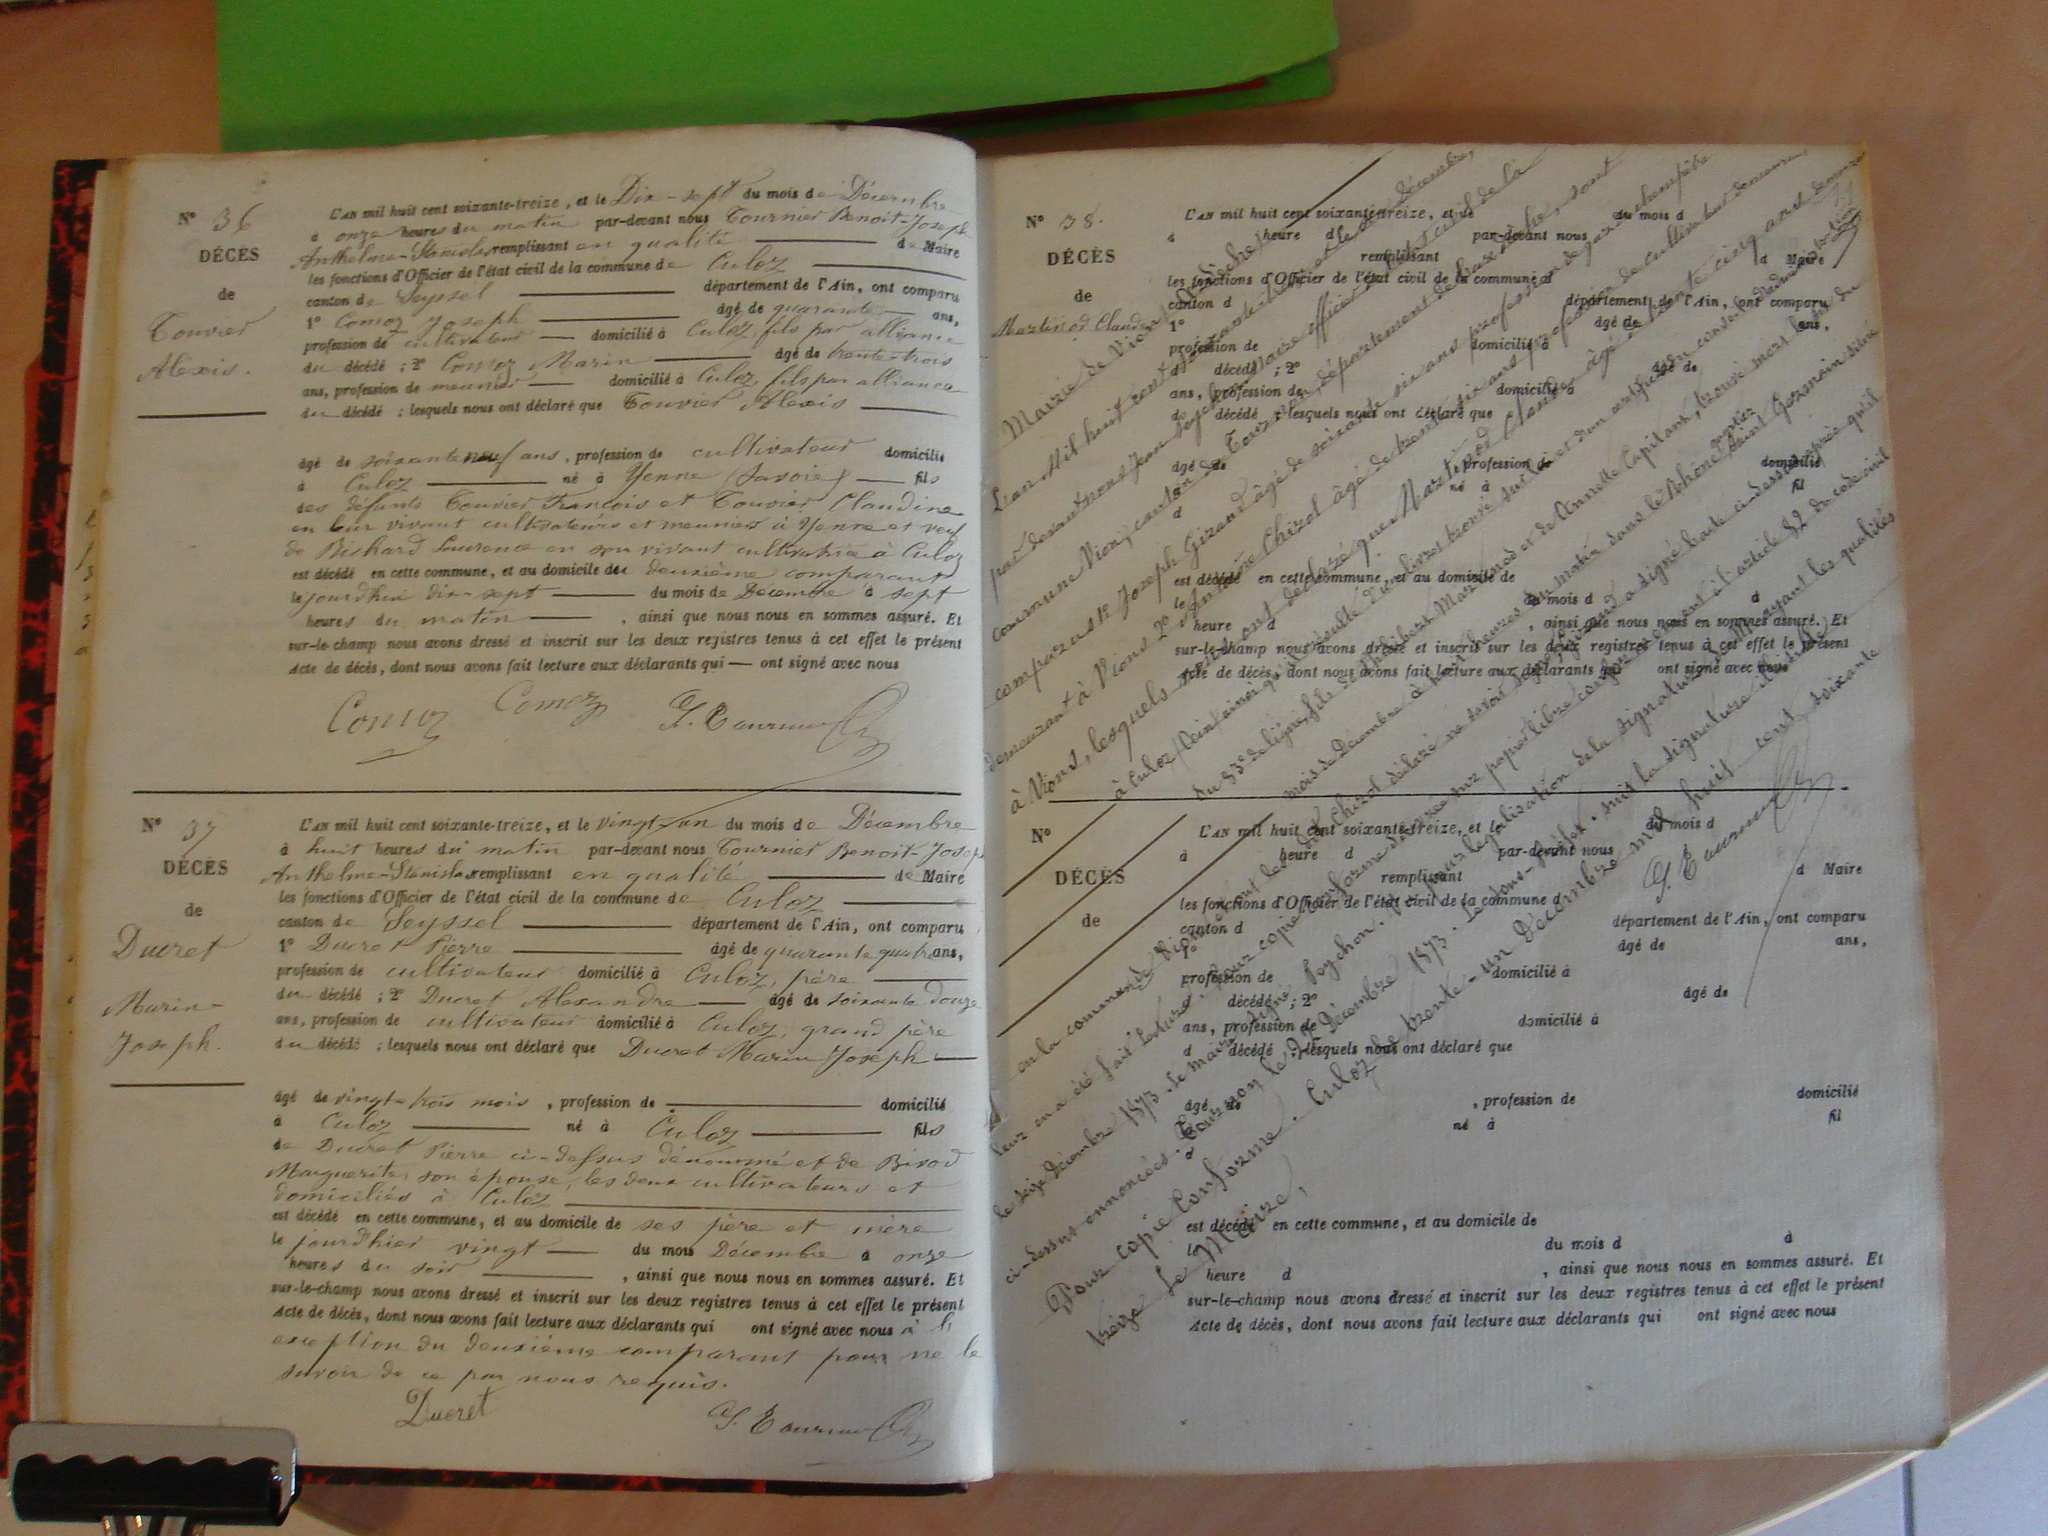 N° 36
DÉCÈS
de
Touvier
Alexis.
L'AN mil huit cent soixante-treize, et le Dix-sept du mois de Décembre
à onze heures du matin par-devant nous Tournier Benoit-Joseph
Anthelme-Stanislas remplissant en qualité de Maire
les fonctions d'Officier de l'état civil de la commune de Culoz
canton de Seyssel département de l'Ain, ont comparu
1° Comoz Joseph âgé de quarante ans,
profession de cultivateur domicilié à Culoz, fils par alliance
du décédé ; 2° Comoz Marin âgé de trente-trois
ans, profession de meunier domicilié à Culoz, fils par alliance
du décédé ; lesquels nous ont déclaré que Touvier Alexis
âgé de soixante neuf ans, profession de cultivateur domicilié
à Culoz né à Yenne (Savoie) fils
des défunts Touvier François et Touvier Claudine
en leur vivant cultivateurs et meuniers à Yenne et veuf
de Bichard Laurence en son vivant cultivatrice à Culoz
est décédé en cette commune, et au domicile du deuxième comparant
le jourd'hui dix-sept du mois de Décembre à sept
heures du matin , ainsi que nous nous en sommes assuré. Et
sur-le-champ nous avons dressé et inscrit sur les deux registres tenus à cet effet le présent
Acte de décès, dont nous avons fait lecture aux déclarants qui — ont signé avec nous
Comoz Comoz J. Tournier
N° 37
DÉCÈS
de
Ducret
Marin-
Joseph.
L'AN mil huit cent soixante-treize, et le vingt-un du mois de Décembre
à huit heures du matin par-devant nous Tournier Benoit-Joseph
Anthelme-Stanislas remplissant en qualité de Maire
les fonctions d'Officier de l'état civil de la commune de Culoz
canton de Seyssel département de l'Ain, ont comparu
1° Ducret Pierre âgé de quarante quatre ans,
profession de cultivateur domicilié à Culoz, père
du décédé ; 2° Ducret Alexandre âgé de soixante douze
ans, profession de cultivateur domicilié à Culoz, grand père
du décédé ; lesquels nous ont déclaré que Ducret Marin Joseph
âgé de vingt-trois mois , profession de domicilié
à Culoz né à Culoz fils
de Ducret Pierre ci-dessus dénommé et de
Marguerite, son épouse, les deux cultivateurs et
domiciliés à Culoz
est décédé en cette commune, et au domicile de ses père et mère
le jourd'hier vingt du mois Décembre à onze
heures du soir , ainsi que nous nous en sommes assuré. Et
sur-le-champ nous avons dressé et inscrit sur les deux registres tenus à cet effet le présent
Acte de décès, dont nous avons fait lecture aux déclarants qui ont signé avec nous à l'
exception du deuxième comparant pour ne le
savoir de ce par nous requis.
Ducret J. Tournier
N° 38.
DÉCÈS
de
Martinod Claude
L'AN mil huit cent soixante-treize, et le du mois d
à heure d par-devant nous
remplissant d Maire
les fonctions d'Officier de l'état civil de la commune d
canton d département de l'Ain, ont comparu
1° âgé de ans,
profession de domicilié à
d décédé ; 2° âgé de
ans, profession de domicilié à
d décédé ; lesquels nous ont déclaré que
âgé de , profession de domicilié
né à fil
d
est décédé en cette commune, et au domicile de
le du mois d à
heure d , ainsi que nous nous en sommes assuré. Et
sur-le-champ nous avons dressé et inscrit sur les deux registres tenus à cet effet le présent
Acte de décès, dont nous avons fait lecture aux déclarants qui ont signé avec nous
Mairie de Vion Décembre,
L'an Mil huit cent soixante treize
par devant nous Jean Peychon Maire officier de l'état civil de la
commune Vion, canton de Tournon, département de l'Ardèche, sont
comparus 1° Joseph Girand âgé de soixante six ans profession de garde champêtre
demeurant à Vions 2° Antoine Chizol âgé de trente six ans profession de cultivateur demeurant
à Vions, lesquels nous ont déclaré que Martinod Claude, âgé de trente cinq ans demeurant
à Culoz
du 53e de ligne, fils de Philibert Martinod et de Annette Capitan, trouvé mort
mois de Décembre à heures du matin dans le Rhône
en la commune de Vion
leur en a été fait lecture. Pour copie conforme délivrée sur papier libre conformément à l'article 82 du code civil
le seize décembre 1873. Le maire signé Peychon. Vu pour légalisation de la signature
ci-dessus énoncées. Tournon le Décembre 1873. Le sous-préfet. suit la signature
Pour copie Conforme. Culoz le trente-un Décembre mil huit cent soixante
treize Le Maire,
J. Tournier
N°
DÉCÈS
de
L'AN mil huit cent soixante-treize, et le du mois d
à heure d par-devant nous
remplissant d Maire
les fonctions d'Officier de l'état civil de la commune d
canton d département de l'Ain, ont comparu
1° âgé de ans,
profession de domicilié à
d décédé ; 2° âgé de
ans, profession de domicilié à
d décédé ; lesquels nous ont déclaré que
âgé de , profession de domicilié
à né à fil
d
est décédé en cette commune, et au domicile de
le du mois d à
heure d , ainsi que nous nous en sommes assuré. Et
sur-le-champ nous avons dressé et inscrit sur les deux registres tenus à cet effet le présent
Acte de décès, dont nous avons fait lecture aux déclarants qui ont signé avec nous